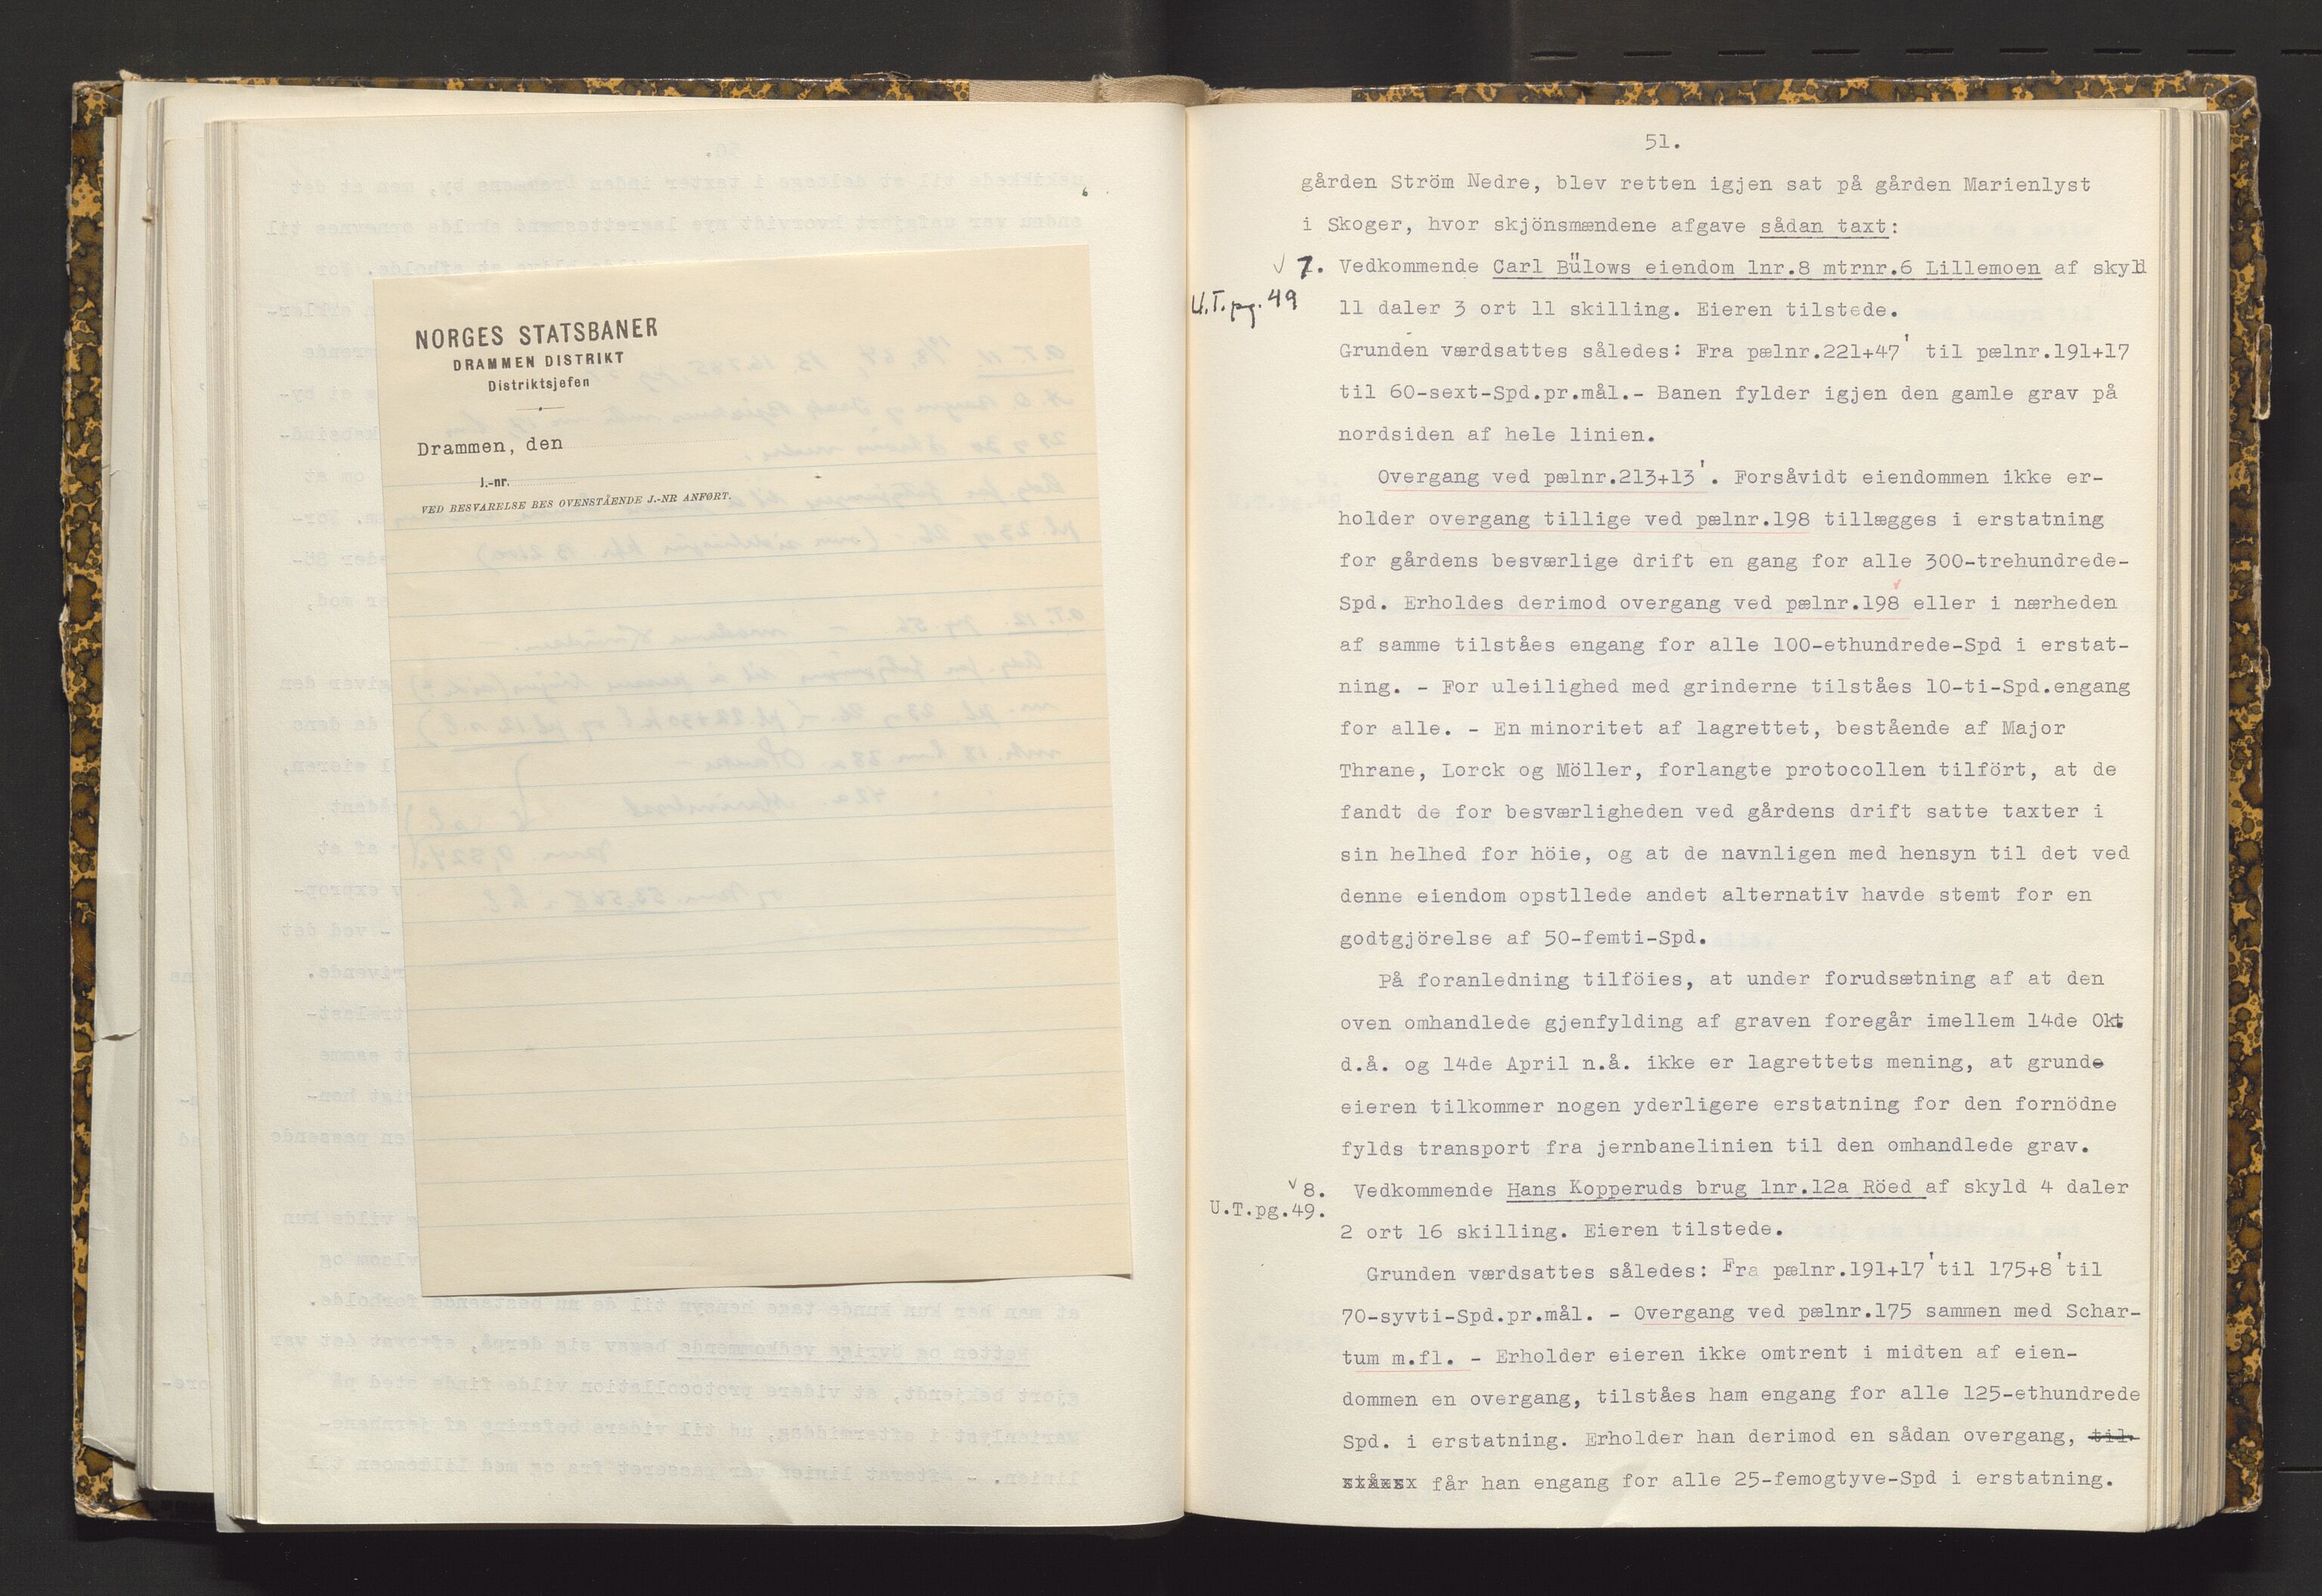 NORGES STATSBANER
DRAMMEN DISTRIKT
Distriktsjefen
Drammen, den
J.-nr.
VED BESVARELSE BES OVENSTÅENDE J.-NR ANFØRT.
51.
gården Ström Nedre, blev retten igjen sat på gården Marienlyst
i Skoger, hvor skjönsmændene afgave sådan taxt:
7. Vedkommende Carl Bülows eiendom lnr.8 mtrnr.6 Lillemoen af skyld
U.T. pg. 49
11 daler 3 ort 11 skilling. Eieren tilstede.
Grunden værdsattes således: Fra pælnr.221+47' til pælnr.191+17
til 60-sext-Spd.pr.mål.- Banen fylder igjen den gamle grav på
nordsiden af hele linien.
Overgang ved pælnr.213+13'. Forsåvidt eiendommen ikke er-
holder overgang tillige ved pælnr.198 tillægges i erstatning
for gårdens besværlige drift en gang for alle 300-trehundrede-
Spd. Erholdes derimod overgang ved pælnr.198 eller i nærheden
af samme tilståes engang for alle 100-ethundrede-Spd i erstat-
ning. - For uleilighed med grinderne tilståes 10-ti-Spd.engang
for alle. - En minoritet af lagrettet, bestående af Major
Thrane, Lorck og Möller, forlangte protocollen tilfört, at de
fandt de for besværligheden ved gårdens drift satte taxter i
sin helhed for höie, og at de navnligen med hensyn til det ved
denne eiendom opstllede andet alternativ havde stemt for en
godtgjörelse af 50-femti-Spd.
På foranledning tilföies, at under forudsætning af at den
oven omhandlede gjenfylding af graven foregår imellem 14de Okt.
d.å. og 14de April n.å. ikke er lagrettets mening, at grunde
eieren tilkommer nogen yderligere erstatning for den fornödne
fylds transport fra jernbanelinien til den omhandlede grav.
8. Vedkommende Hans Kopperuds brug lnr.12a Röed af skyld 4 daler
U.T.pg.49.
2 ort 16 skilling. Eieren tilstede.
Grunden værdsattes således: Fra pælnr.191+17' til 175+8' til
70-syvti-Spd.pr.mål. - Overgang ved pælnr.175 sammen med Schar-
tum m.fl. - Erholder eieren ikke omtrent i midten af eien-
dommen en overgang, tilståes ham engang for alle 125-ethundrede
Spd. i erstatning. Erholder han derimod en sådan overgang, til-
ståes får han engang for alle 25-femogtyve-Spd i erstatning.